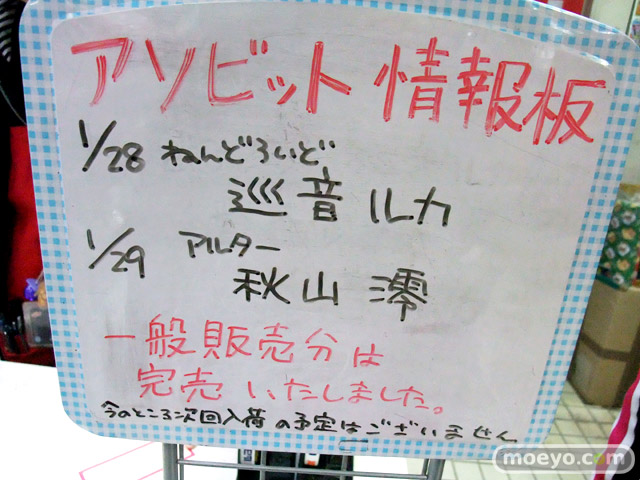 アソビット情報板
1/28 ねんどろいど
巡音ルカ
1/29 アルター
秋山澪
一般販売分は
完売いたしました。
今のところ次回入荷の予定はございません
moeyo.com